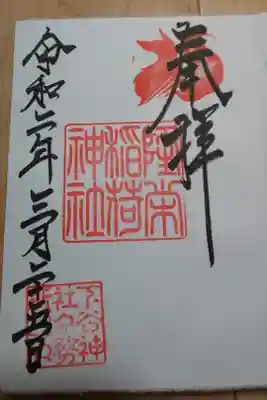 奉拝
隆栄
稲荷
神社
令和二年三月二十五日
下谷神
社々務